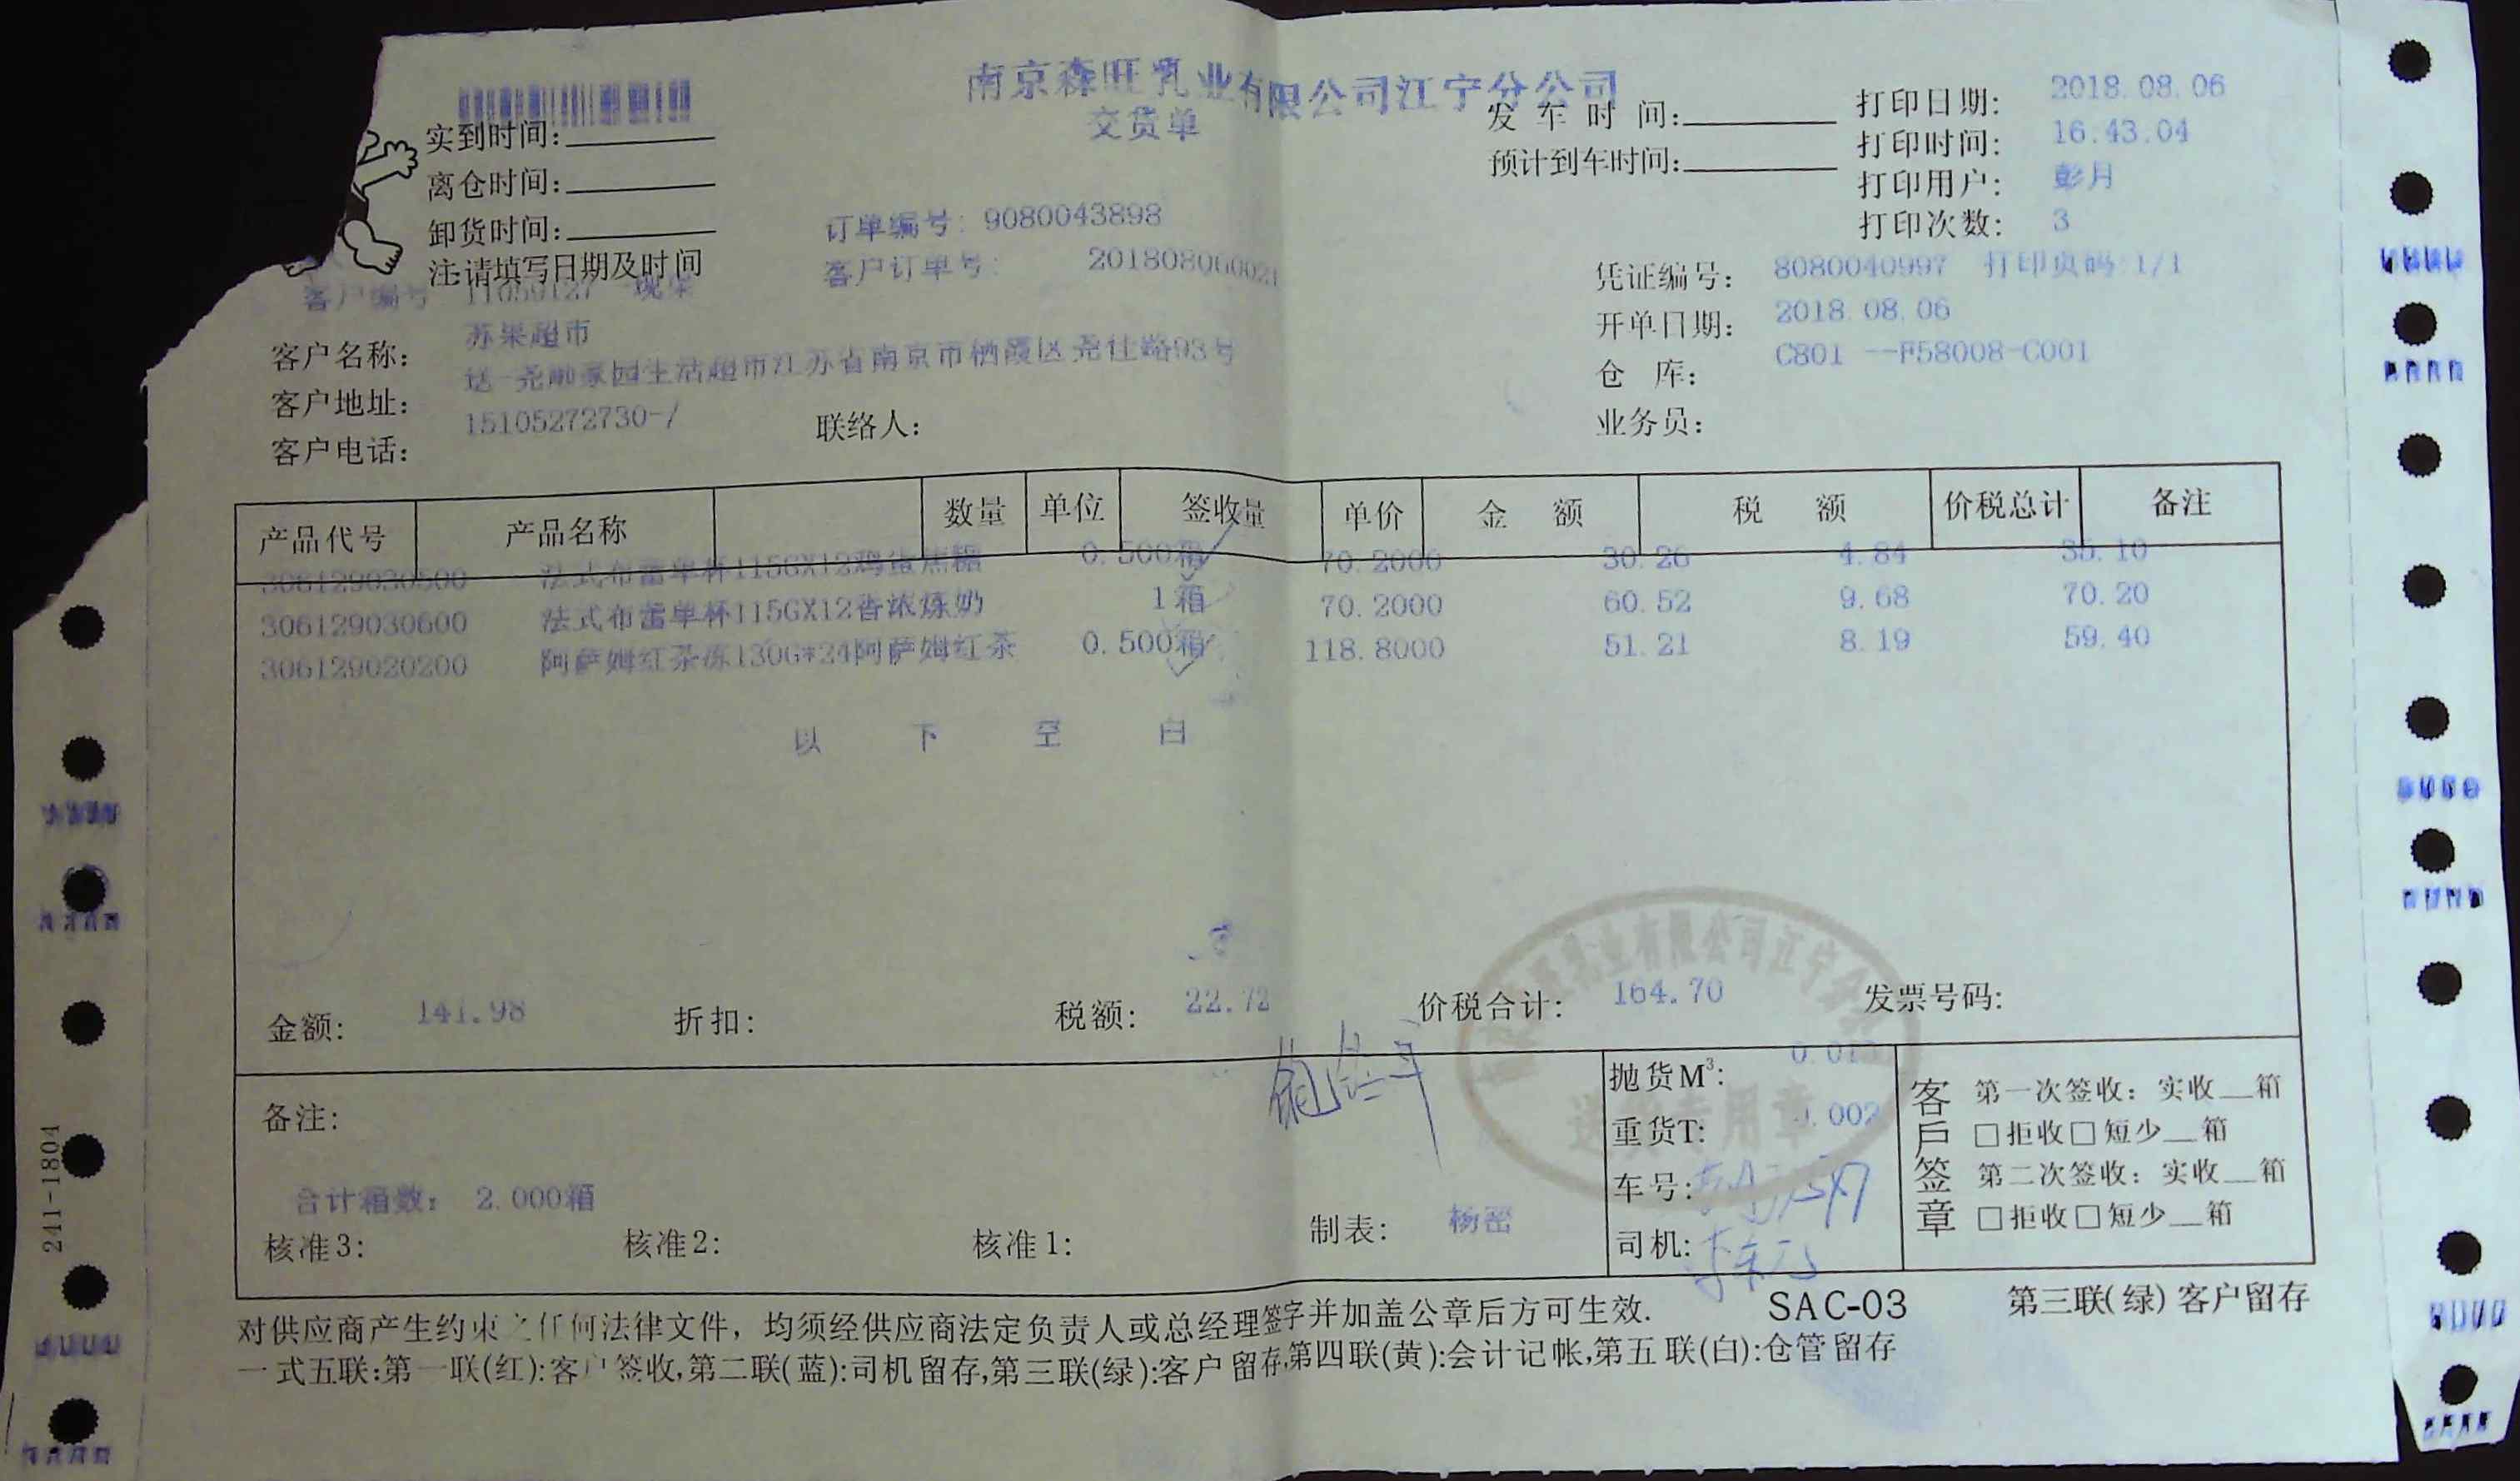 南京森旺乳业有限公司江宁分公司
交货单
实到时间:
离仓时间:
卸货时间:
注:请填写日期及时间
发车时间:
预计到车时间:
打印日期: 2018.08.06
打印时间: 16.43.04
打印用户: 彭月
打印次数: 3
订单编号: 9080043898
客户订单号: 2018080600021
凭证编号: 8080040997 打印页码 1/1
开单日期: 2018.08.06
仓库: C801 --F58008-C001
业务员:
客户编号 11059127
客户名称: 苏果超市
客户地址: 家园生活超市江苏省南京市栖霞区尧佳路93号
客户电话: 15105272730-/ 联络人:
产品代号 产品名称 数量 单位 签收量 单价 金额 税额 价税总计 备注
306129030500 法式布蕾单杯115GX12鸡蛋焦糖 0.500箱 70.2000 30.26 4.84 35.10
306129030600 法式布蕾单杯115GX12香浓炼奶 1箱 70.2000 60.52 9.68 70.20
306129020200 阿萨姆红茶冻130G*24阿萨姆红茶 0.500箱 118.8000 51.21 8.19 59.40
以下空白
金额: 141.98 折扣: 税额: 22.72 价税合计: 164.70 发票号码:
备注:
合计箱数: 2.000箱
核准3: 核准2: 核准1: 制表: 杨密
抛货M³: 0.013
重货T: 0.002
车号:
司机:
客戶签章
第一次签收: 实收__箱
□拒收□短少__箱
第二次签收: 实收__箱
□拒收□短少__箱
乳业有限公司江宁分
送货专用章
对供应商产生约束之任何法律文件, 均须经供应商法定负责人或总经理签字并加盖公章后方可生效. SAC-03 第三联(绿) 客户留存
一式五联:第一联(红):客户签收,第二联(蓝):司机留存,第三联(绿):客户留存,第四联(黄):会计记帐,第五联(白):仓管留存
241-1804